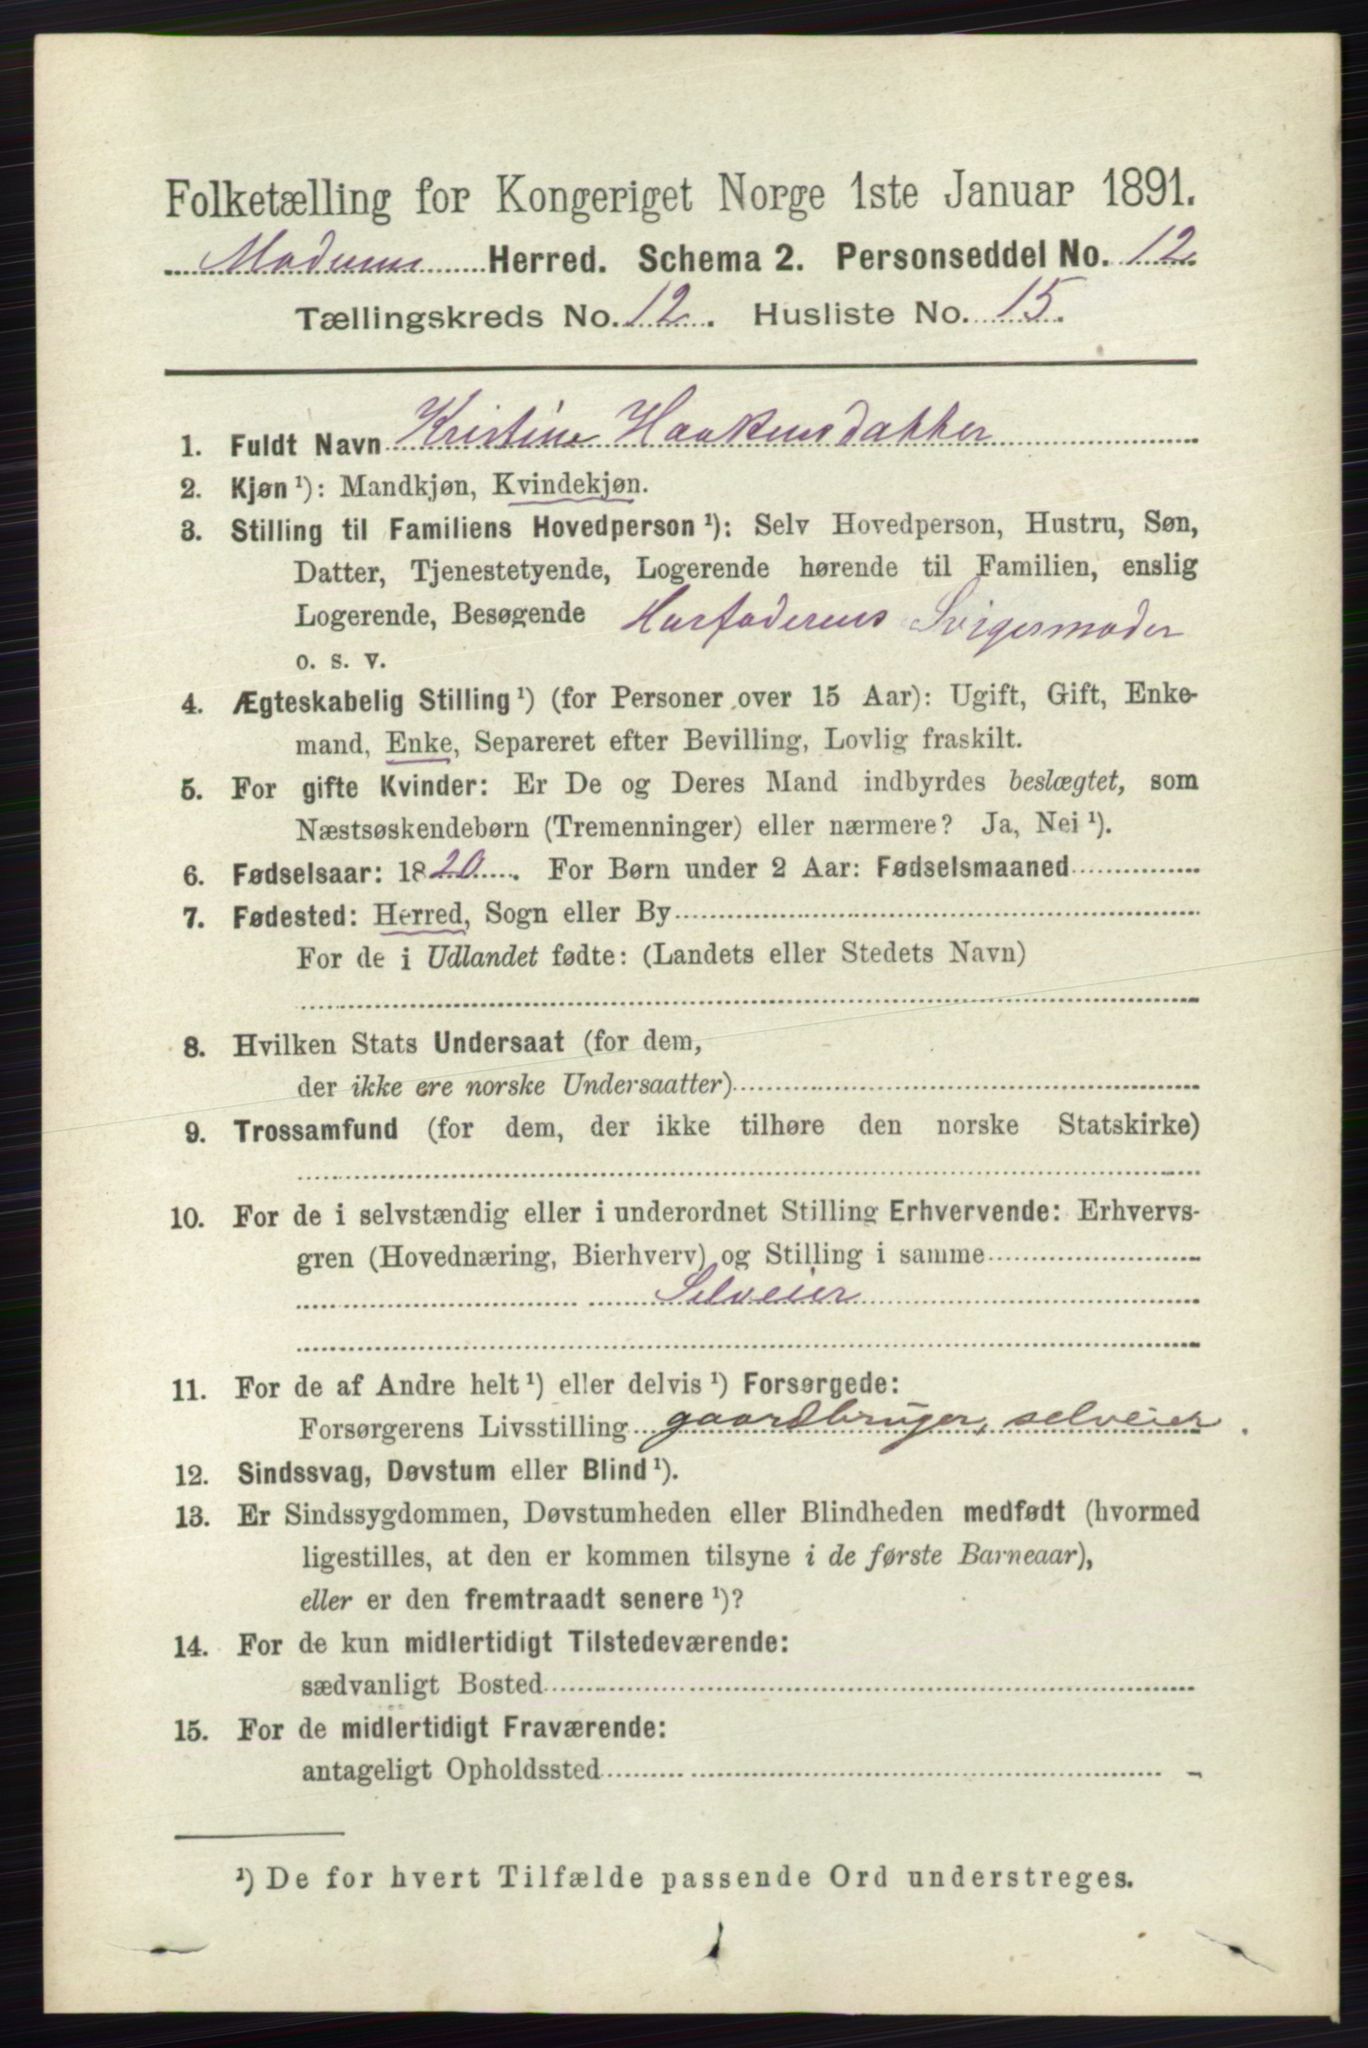 Folketælling for Kongeriget Norge 1ste Januar 1891.
Modum Herred. Schema 2. Personseddel No. 12
Tællingskreds No. 12. Husliste No. 15.
1. Fuldt Navn Kristine Haakensdatter
2. Kjøn ¹): Mandkjøn, Kvindekjøn.
3. Stilling til Familiens Hovedperson ¹): Selv Hovedperson, Hustru, Søn,
Datter, Tjenestetyende, Logerende hørende til Familien, enslig
Logerende, Besøgende Husfaderens Svigermoder
o. s. v.
4. Ægteskabelig Stilling ¹) (for Personer over 15 Aar): Ugift, Gift, Enke-
mand, Enke, Separeret efter Bevilling, Lovlig fraskilt.
5. For gifte Kvinder: Er De og Deres Mand indbyrdes beslægtet, som
Næstsøskendebørn (Tremenninger) eller nærmere? Ja, Nei ¹).
6. Fødselsaar: 1820. For Børn under 2 Aar: Fødselsmaaned
7. Fødested: Herred, Sogn eller By
For de i Udlandet fødte: (Landets eller Stedets Navn)
8. Hvilken Stats Undersaat (for dem,
der ikke ere norske Undersaatter)
9. Trossamfund (for dem, der ikke tilhøre den norske Statskirke)
10. For de i selvstændig eller i underordnet Stilling Erhvervende: Erhvervs-
gren (Hovednæring, Bierhverv) og Stilling i samme
Selveier
11. For de af Andre helt ¹) eller delvis ¹) Forsørgede:
Forsørgerens Livsstilling gaardbruger, selveier.
12. Sindssvag, Døvstum eller Blind ¹).
13. Er Sindssygdommen, Døvstumheden eller Blindheden medfødt (hvormed
ligestilles, at den er kommen tilsyne i de første Barneaar),
eller er den fremtraadt senere ¹)?
14. For de kun midlertidigt Tilstedeværende:
sædvanligt Bosted
15. For de midlertidigt Fraværende:
antageligt Opholdssted
¹) De for hvert Tilfælde passende Ord understreges.